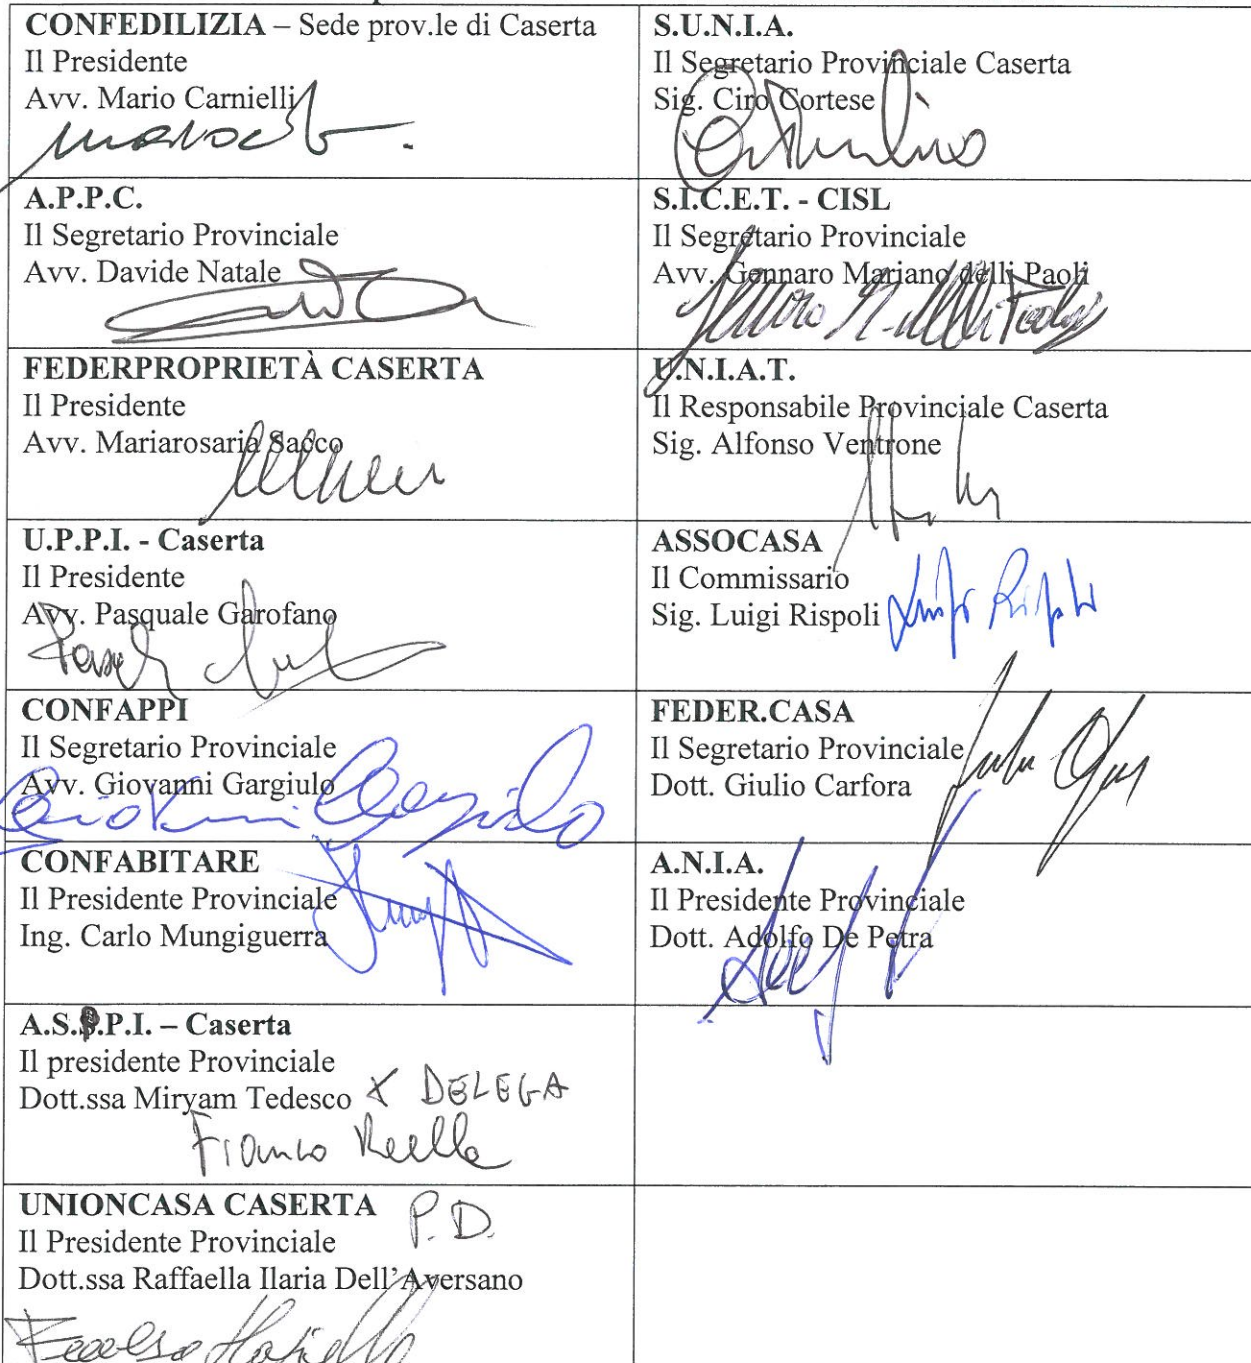 CONFEDILIZIA – Sede prov.le di Caserta
Il Presidente
Avv. Mario Carnielli
S.U.N.I.A.
Il Segretario Provinciale Caserta
Sig. Ciro Cortese
A.P.P.C.
Il Segretario Provinciale
Avv. Davide Natale
S.I.C.E.T. - CISL
Il Segretario Provinciale
Avv. Gennaro Mariano delli Paoli
FEDERPROPRIETÀ CASERTA
Il Presidente
Avv. Mariarosaria Sacco
U.N.I.A.T.
Il Responsabile Provinciale Caserta
Sig. Alfonso Ventrone
U.P.P.I. - Caserta
Il Presidente
Avv. Pasquale Garofano
ASSOCASA
Il Commissario
Sig. Luigi Rispoli
Luigi Rispoli
CONFAPPI
Il Segretario Provinciale
Avv. Giovanni Gargiulo
Giovanni Gargiulo
FEDER.CASA
Il Segretario Provinciale
Dott. Giulio Carfora
CONFABITARE
Il Presidente Provinciale
Ing. Carlo Mungiguerra
A.N.I.A.
Il Presidente Provinciale
Dott. Adolfo De Petra
A.S.P.P.I. – Caserta
Il presidente Provinciale
Dott.ssa Miryam Tedesco X DELEGA
Franco
UNIONCASA CASERTA P.D.
Il Presidente Provinciale
Dott.ssa Raffaella Ilaria Dell'Aversano